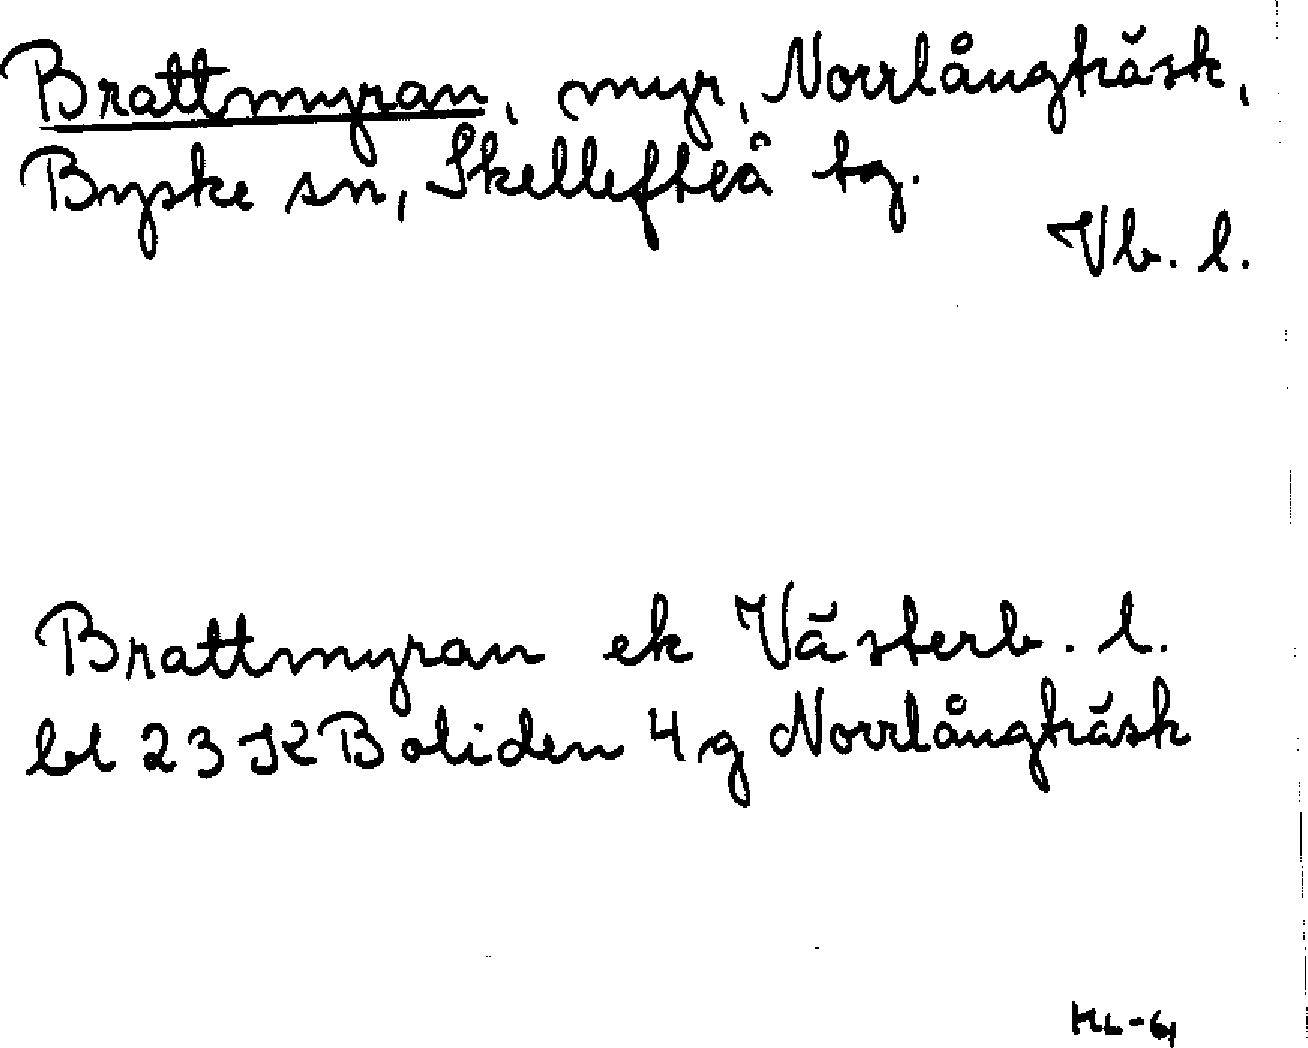 Brattmyran, myr, Norrlångträsk,
Byske sn, Skellefteå tg.
Vb. l.
Brattmyran ek Västerb. l.
bl 23 K Boliden 4 g Norrlångträsk